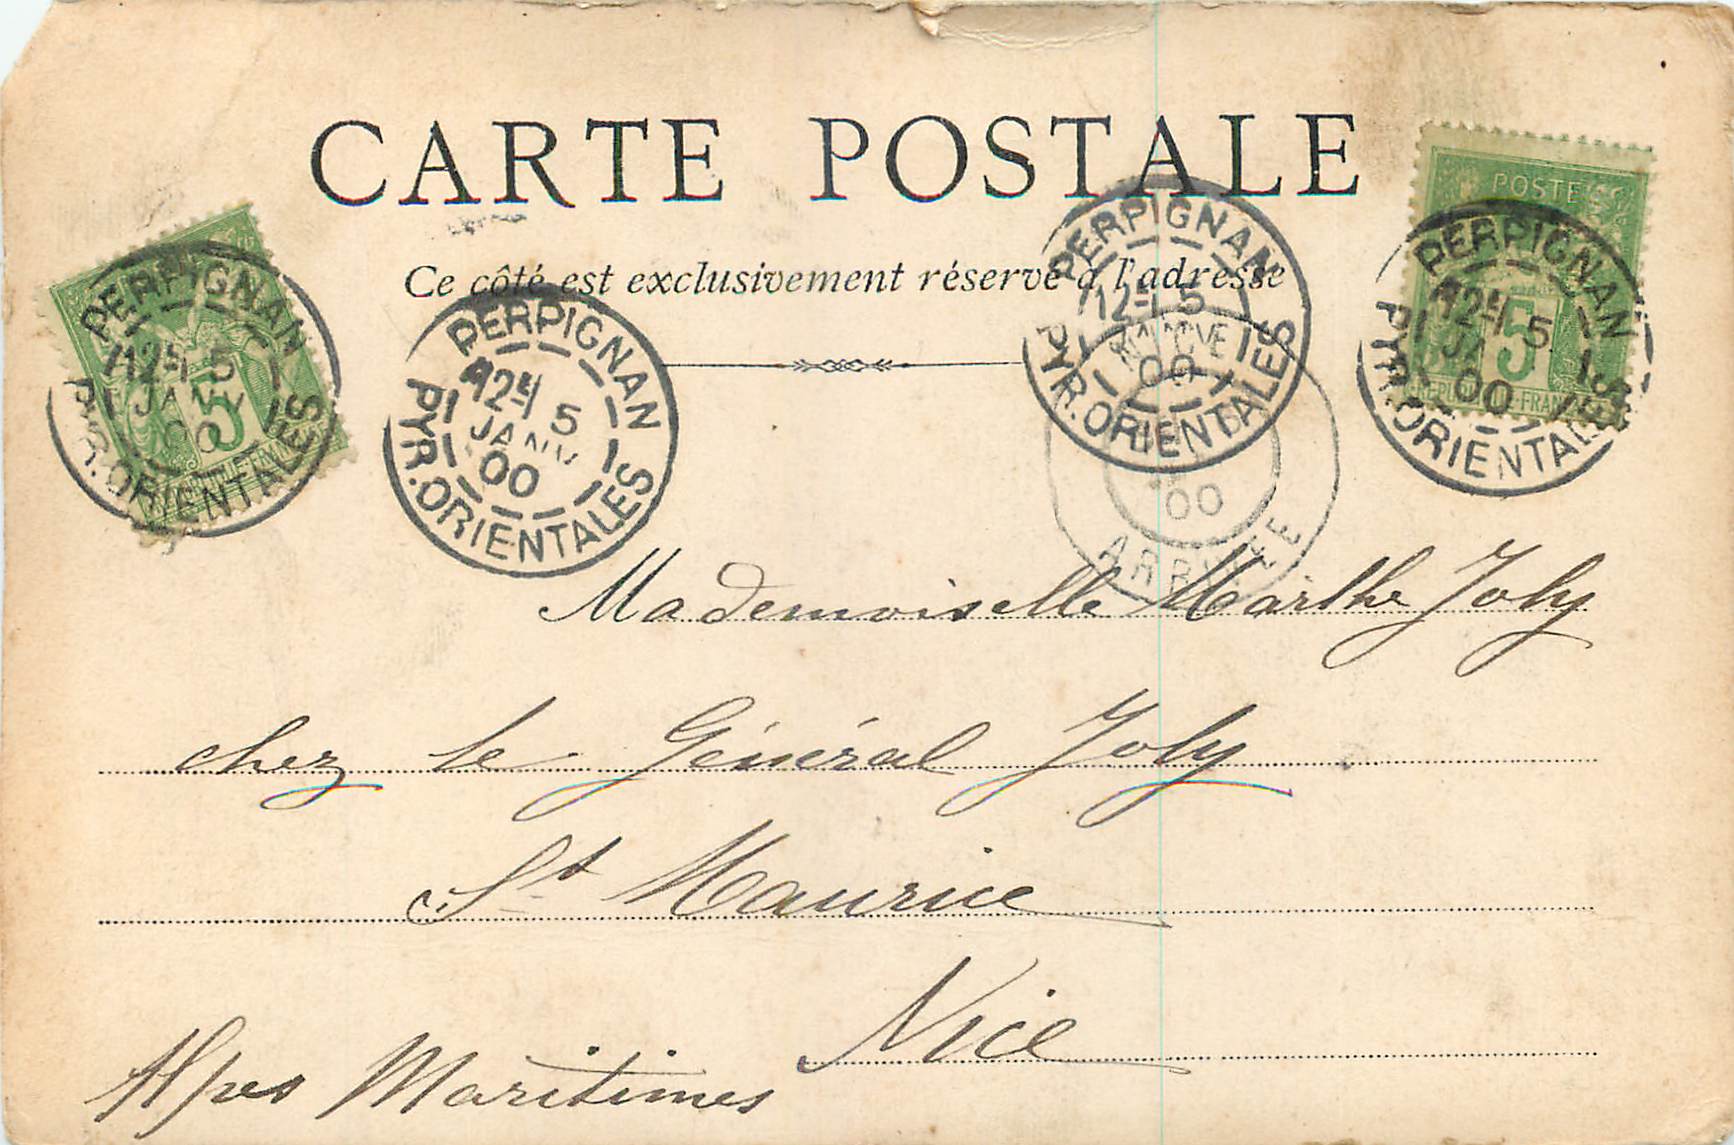 CARTE POSTALE
Ce côté est exclusivement réservé à l'adresse
PERPIGNAN
12 5
JANV
00
PYR. ORIENTALES
5
PERPIGNAN
12 5
JANV
00
PYR. ORIENTALES
PERPIGNAN
12 5
00
PYR. ORIENTALES
00
ARRIVEE
POSTES
PERPIGNAN
12 5
JA
00
PYR. ORIENTALES
5
Mademoiselle Marthe Joly
chez le Général Joly
St Maurice
Nice
Alpes Maritimes